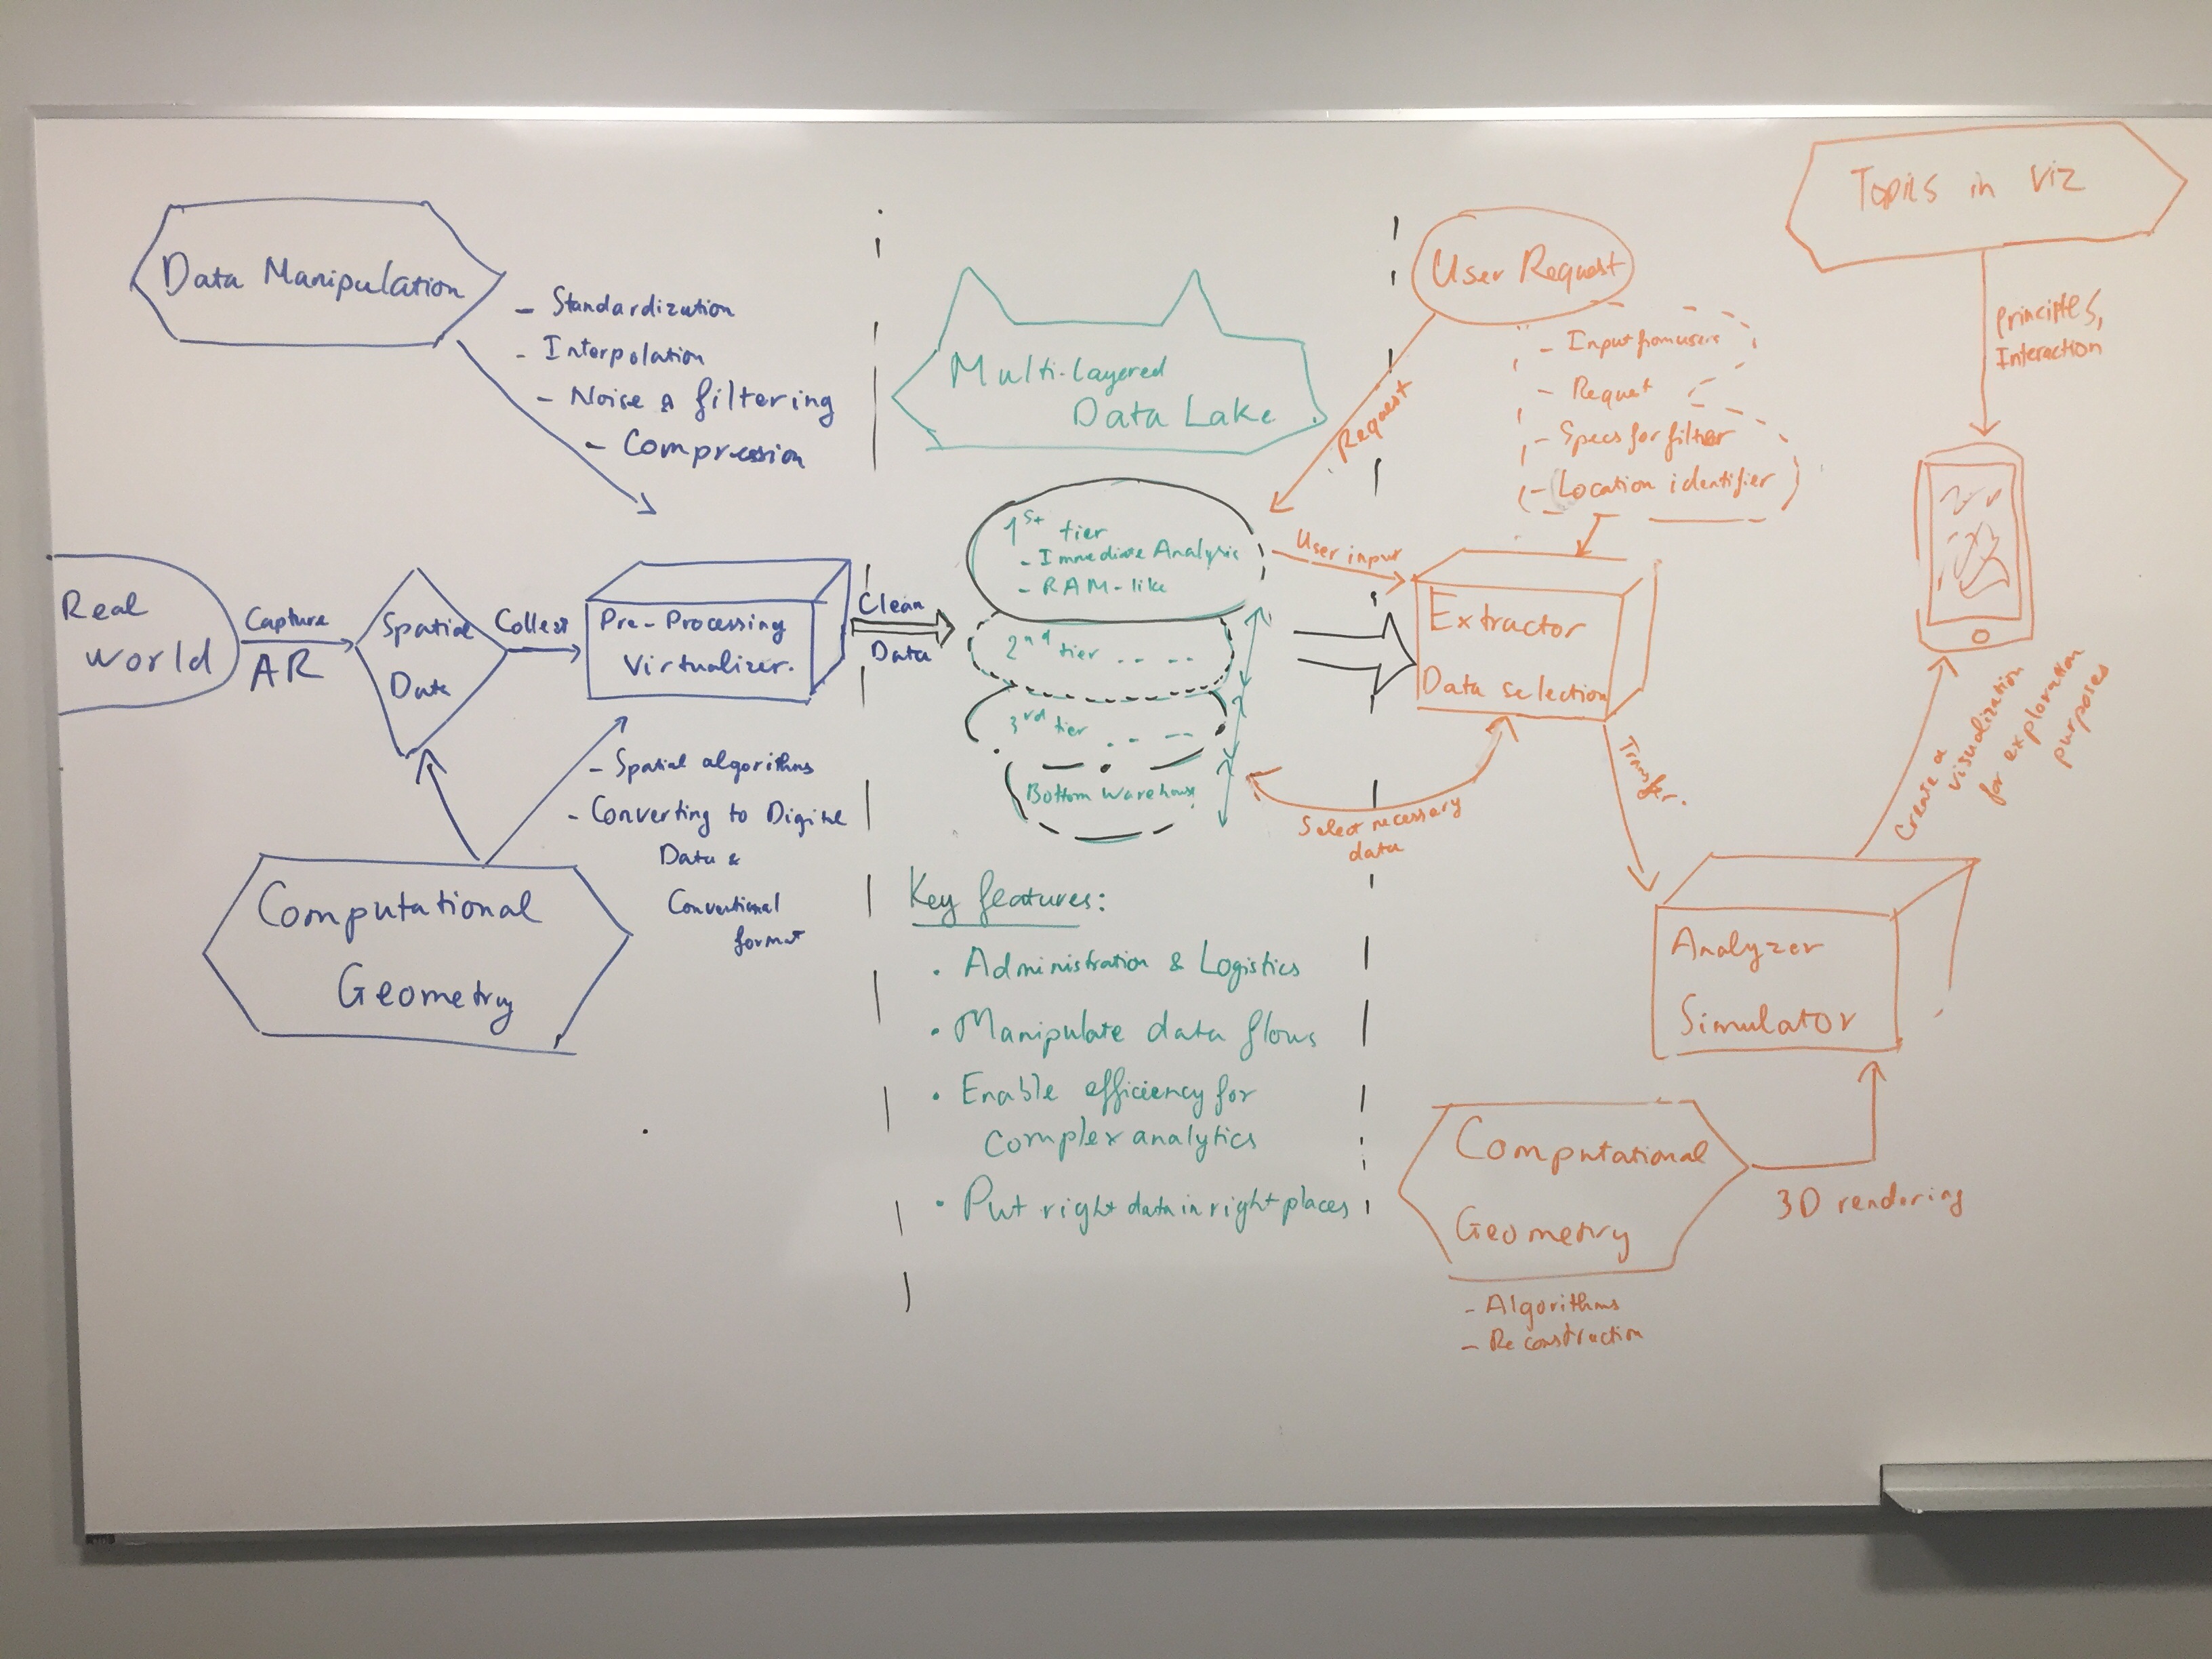 Data Manipulation
- Standardization
- Interpolation
- Noise & filtering
- Compression
Real
world
Capture
AR
Spatial
Data
Collect
Pre-Processing
Virtualizer.
Clean
Data
- Spatial algorithms
- Converting to Digital
Data &
Conventional
format
Computational
Geometry
Multi-layered
Data Lake
1st tier
- Immediate Analysis
- RAM-like
2nd tier .. --
3rd tier .. --
Bottom Warehouse
Key features:
• Administration & Logistics
• Manipulate data flows
• Enable efficiency for
complex analytics
• Put right data in right places
User Request
Request
- Input from users
- Request
- Specs for filter
- Location identifier
User input
Extractor
Data selection
Select necessary
data
Transfer.
Topics in Viz
Principles,
Interaction
Create a
visualization
for exploration
purposes
Analyzer
Simulator
Computational
Geometry
3D rendering
- Algorithms
- Reconstruction